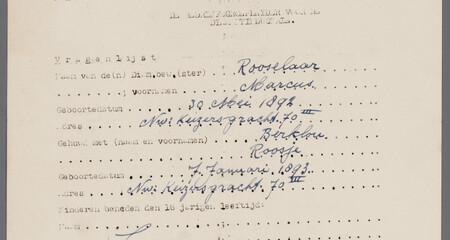 Vragenlijst
Naam van de(n) Dian,oew,(ster) Rooselaar
voornamen Marcus
Geboortedatum 30 Mei 1892
Adres Nw. Keizersgracht 70 III
Gehuwd met (naam en voornamen) Berklou
Roosje
Geboortedatum 7 Januari 1893
Adres Nw. Keizersgracht 70 III
Kinderen beneden den 16 jarigen leeftijd:
Naam